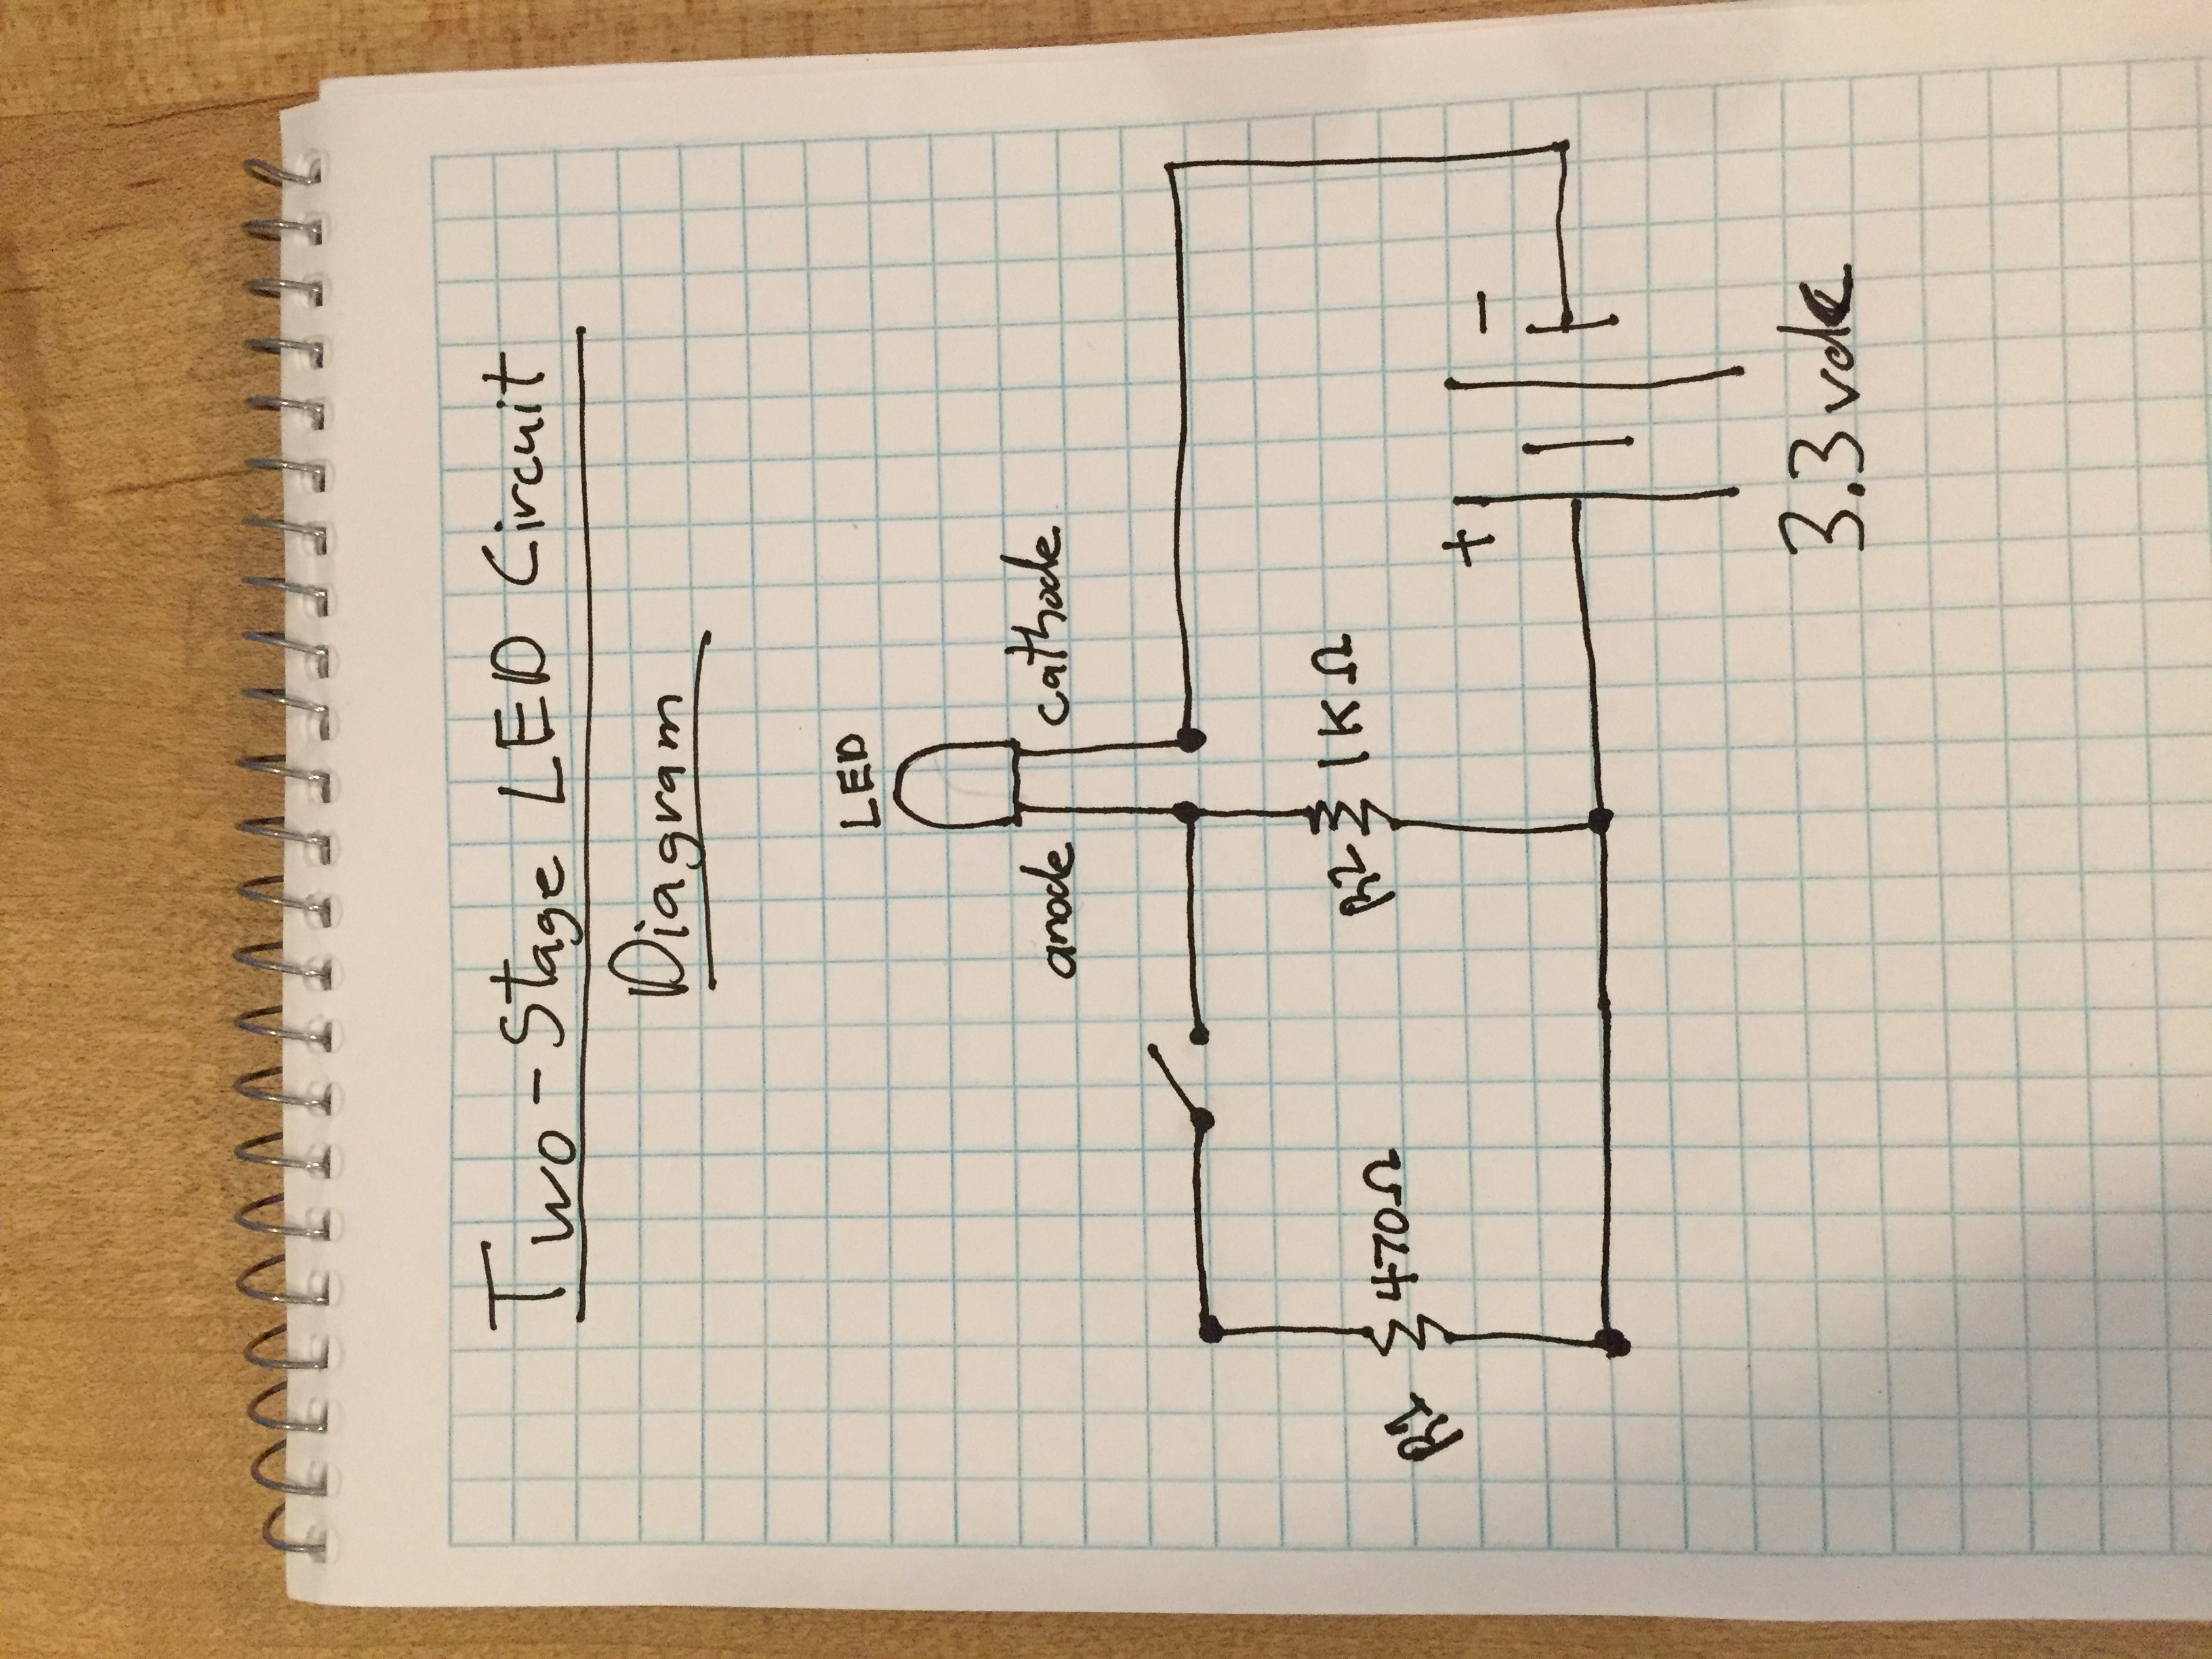 Two-Stage LED Circuit
Diagram
LED
anode
cathode
R2
1KΩ
R1
470Ω
+
-
3.3vdc